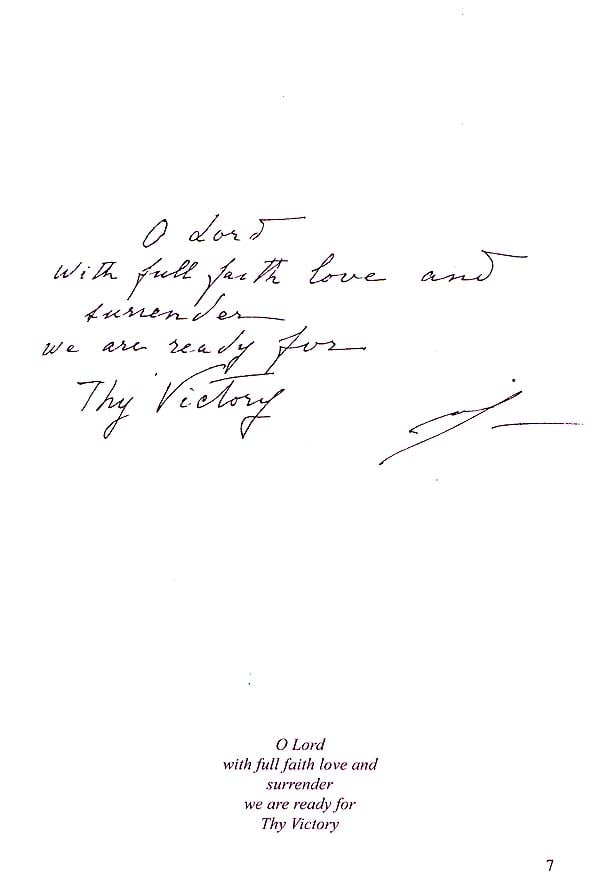 O Lord
with full faith love and
surrender
we are ready for
Thy Victory
O Lord
with full faith love and
surrender
we are ready for
Thy Victory
7